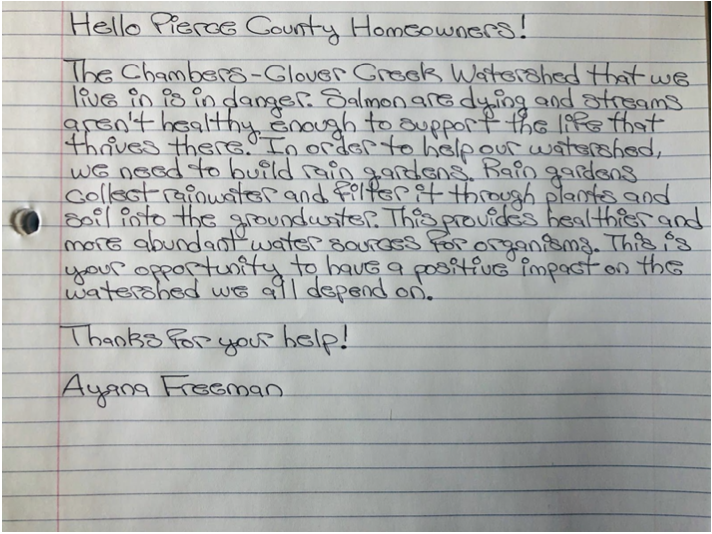 Hello Pierce County Homeowners!
The Chambers-Clover Creek Watershed that we
live in is in danger. Salmon are dying and streams
aren't healthy enough to support the life that
thrives there. In order to help our watershed,
we need to build rain gardens. Rain gardens
collect rainwater and filter it through plants and
soil into the groundwater. This provides healthier and
more abundant water sources for organisms. This is
your opportunity to have a positive impact on the
watershed we all depend on.
Thanks for your help!
Ayana Freeman